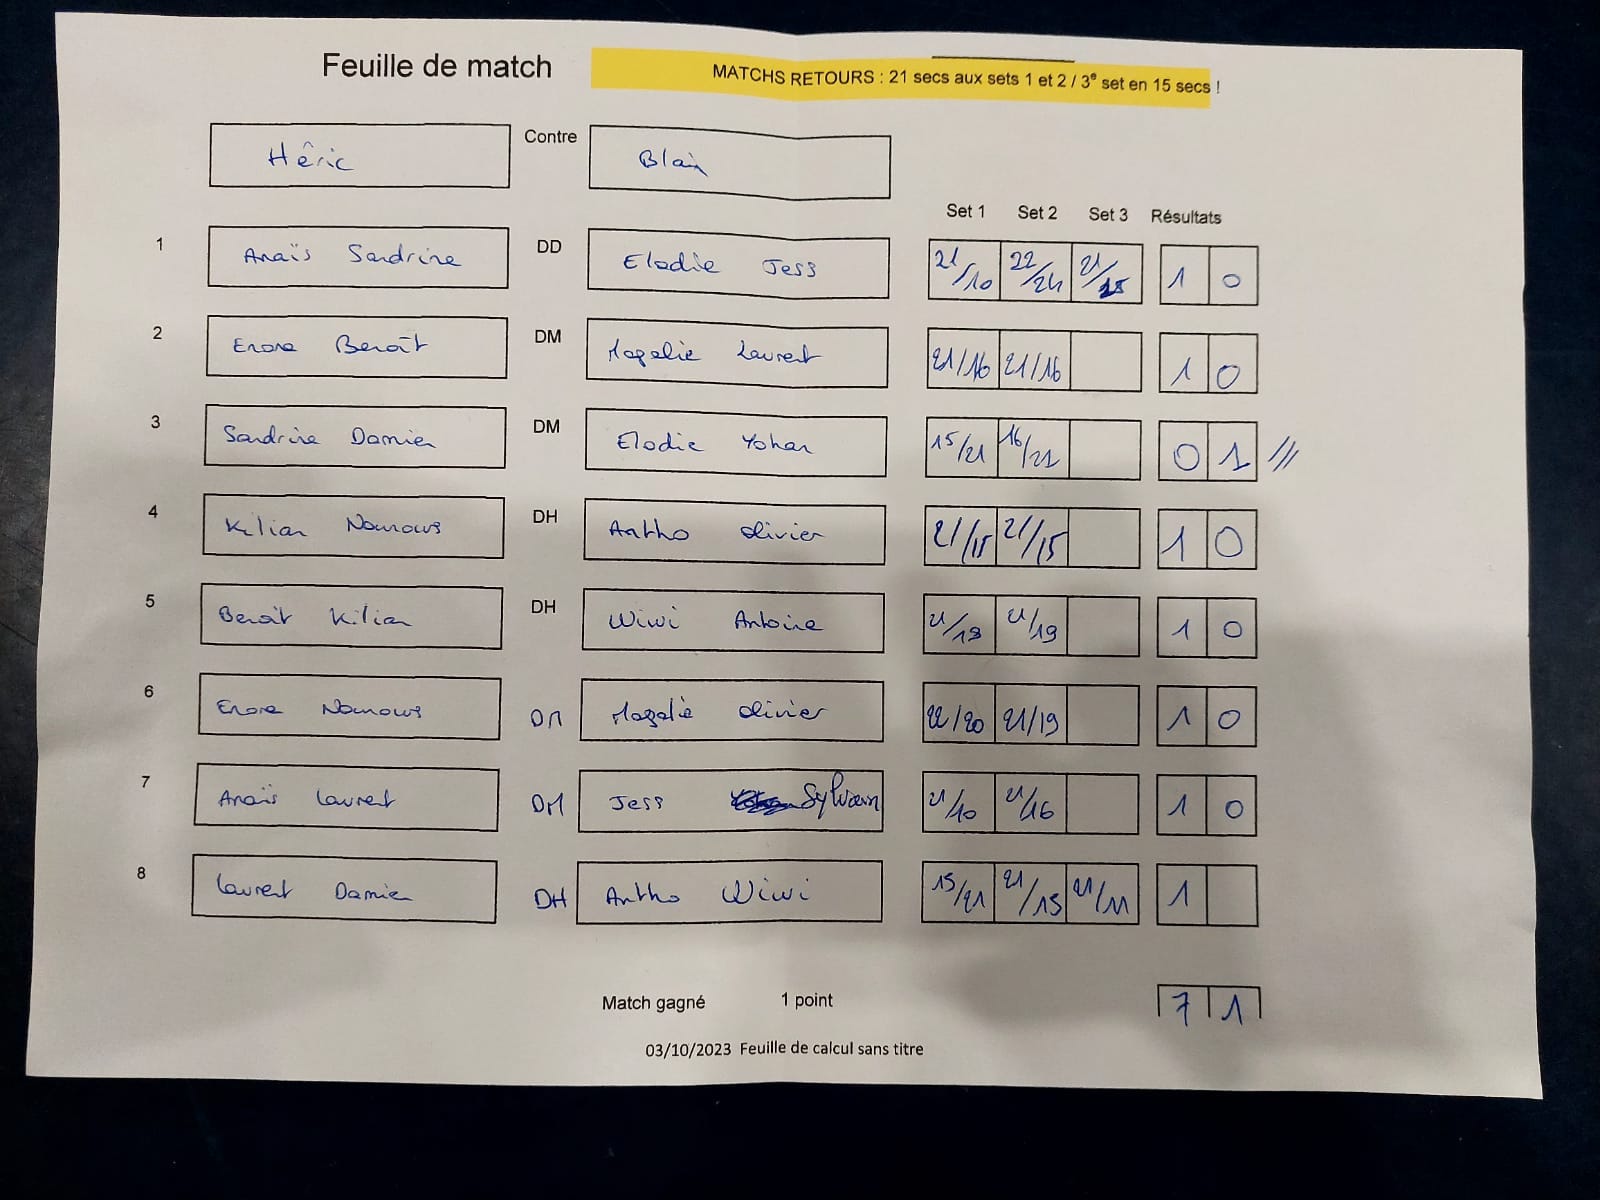 Feuille de match MATCHS RETOURS : 21 secs aux sets 1 et 2 / 3e set en 15 secs !
Héric Contre Blain
Set 1 Set 2 Set 3 Résultats
1 Anaïs Sandrine DD Elodie Jess 21/10 22/24 21/15 1 0
2 Enora Benoît DM Magalie Laurent 21/16 21/16 1 0
3 Sandrine Damien DM Elodie Yohan 15/21 16/21 0 1 ///
4 Kilian Nounours DH Antho Olivier 21/15 21/15 1 0
5 Benoît Kilian DH Wiwi Antoine 21/19 21/19 1 0
6 Enora Nounours DM Magalie Olivier 22/20 21/19 1 0
7 Anaïs Laurent DM Jess Sylvain 21/10 21/16 1 0
8 Laurent Damien DH Antho Wiwi 15/21 21/15 21/11 1
Match gagné 1 point 7 1
03/10/2023 Feuille de calcul sans titre